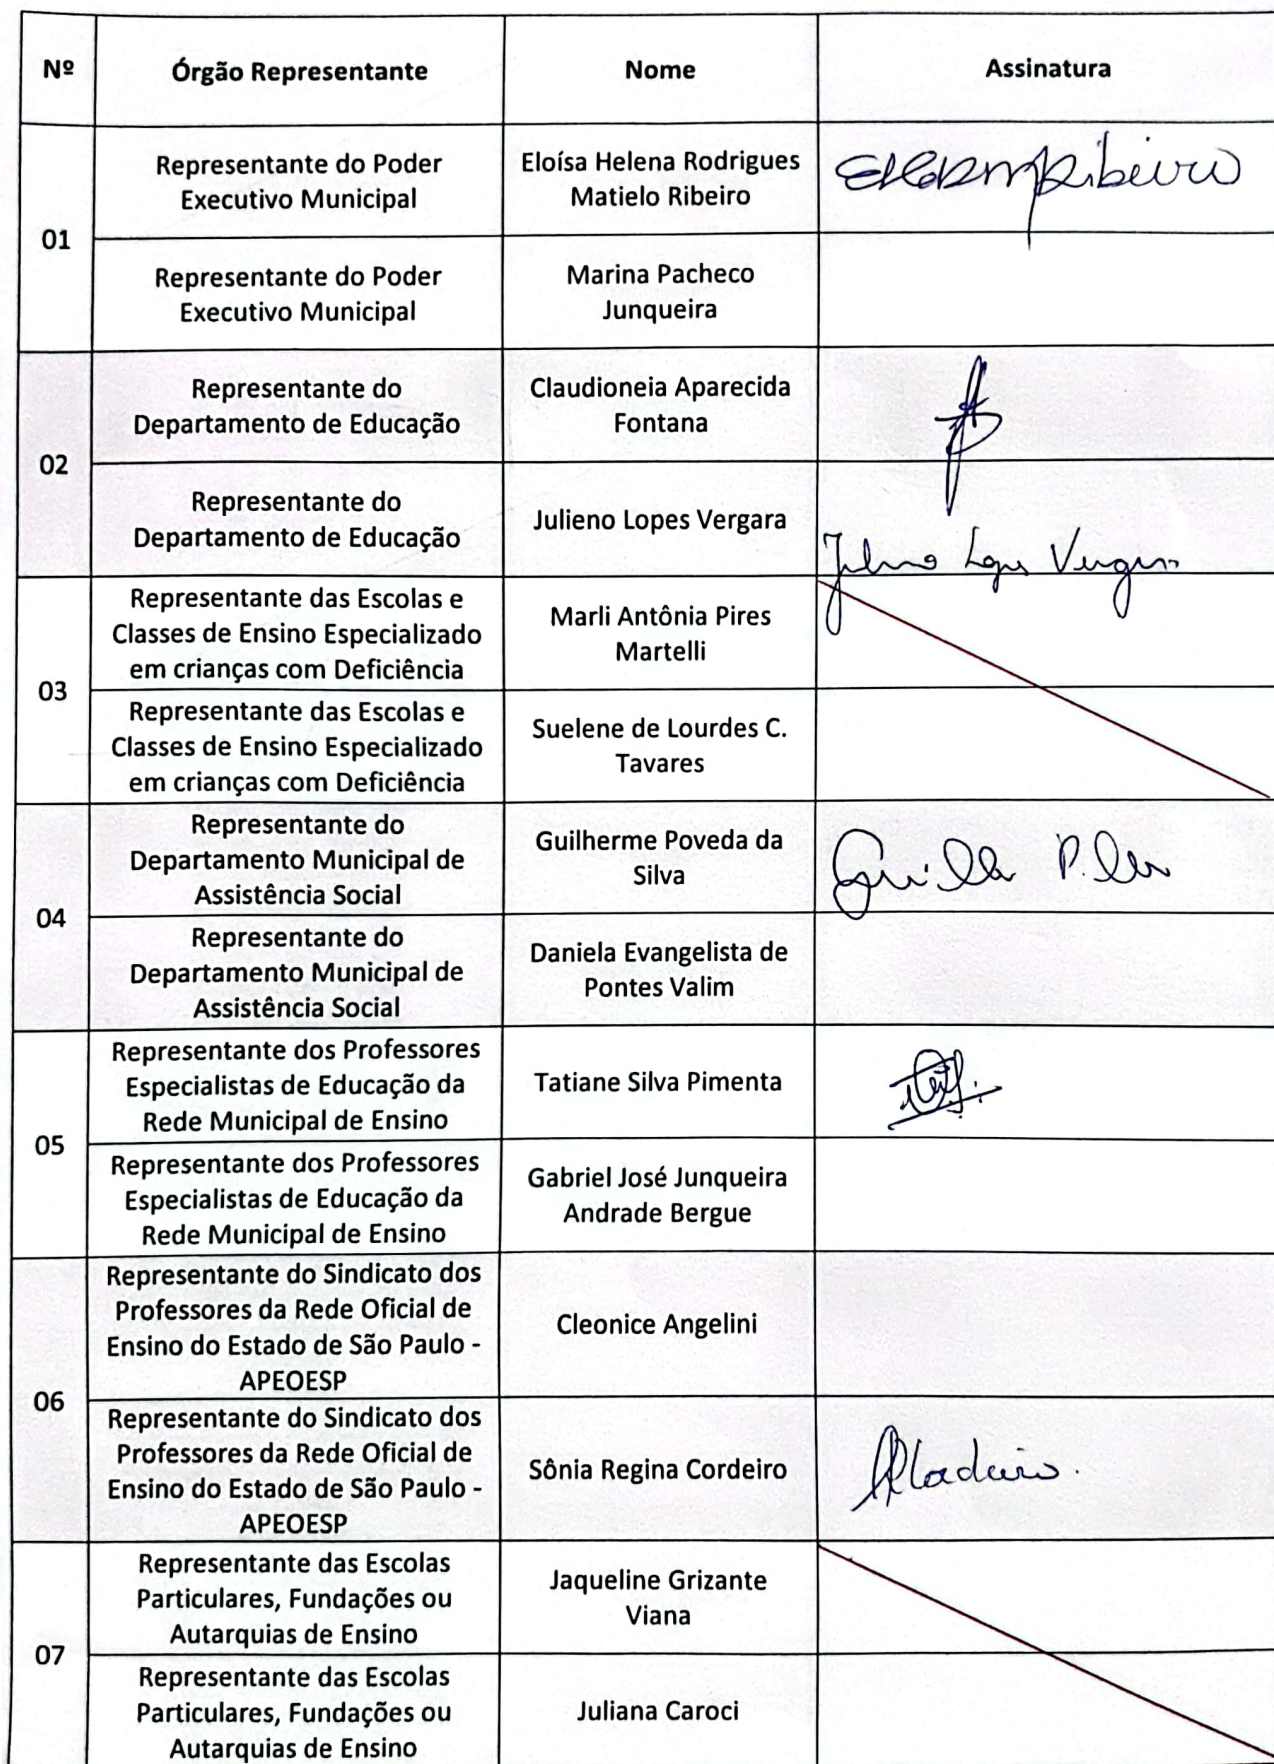 Nº Órgão Representante Nome Assinatura
01
Representante do Poder
Executivo Municipal
Eloísa Helena Rodrigues
Matielo Ribeiro
Ribeiro
Representante do Poder
Executivo Municipal
Marina Pacheco
Junqueira
02
Representante do
Departamento de Educação
Claudioneia Aparecida
Fontana
Representante do
Departamento de Educação
Julieno Lopes Vergara
03
Representante das Escolas e
Classes de Ensino Especializado
em crianças com Deficiência
Marli Antônia Pires
Martelli
Representante das Escolas e
Classes de Ensino Especializado
em crianças com Deficiência
Suelene de Lourdes C.
Tavares
04
Representante do
Departamento Municipal de
Assistência Social
Guilherme Poveda da
Silva
Representante do
Departamento Municipal de
Assistência Social
Daniela Evangelista de
Pontes Valim
05
Representante dos Professores
Especialistas de Educação da
Rede Municipal de Ensino
Tatiane Silva Pimenta
Representante dos Professores
Especialistas de Educação da
Rede Municipal de Ensino
Gabriel José Junqueira
Andrade Bergue
06
Representante do Sindicato dos
Professores da Rede Oficial de
Ensino do Estado de São Paulo -
APEOESP
Cleonice Angelini
Representante do Sindicato dos
Professores da Rede Oficial de
Ensino do Estado de São Paulo -
APEOESP
Sônia Regina Cordeiro
07
Representante das Escolas
Particulares, Fundações ou
Autarquias de Ensino
Jaqueline Grizante
Viana
Representante das Escolas
Particulares, Fundações ou
Autarquias de Ensino
Juliana Caroci